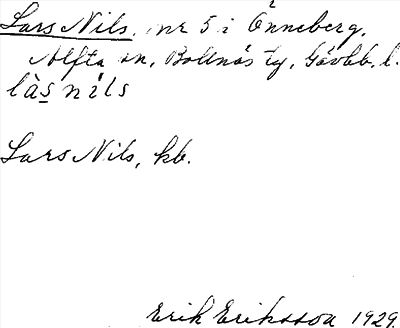 Lars Nils, nr 5 i Önneberg,
Alfta sn, Bollnäs tg, Gävleb. l.
làs nils
Lars Nils, kb.
Erik Eriksson 1929.